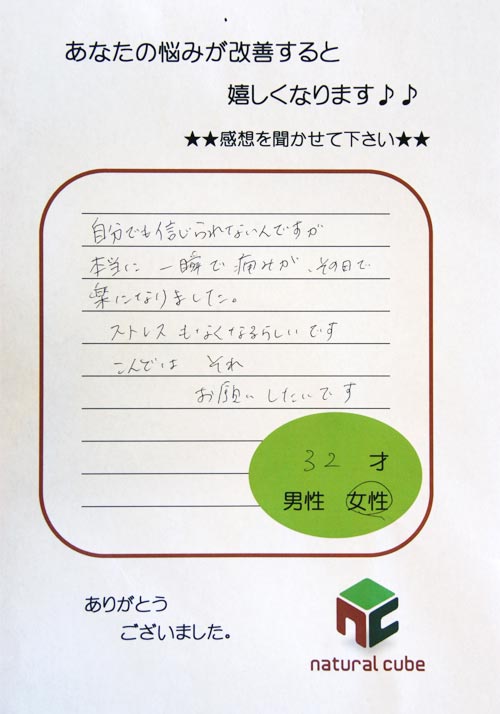 あなたの悩みが改善すると
嬉しくなります♪♪
★★感想を聞かせて下さい★★
自分でも信じられないんですが
本当に 一瞬で 痛みが、その日で
楽になりました。
ストレス もなくなるらしいです
こんでは それ
お願い したいです
32 才
男性 女性
ありがとう
ございました。
nc
natural cube